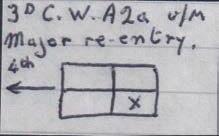 3D C.W.A2a v/m
Major re-entry.
4th
x